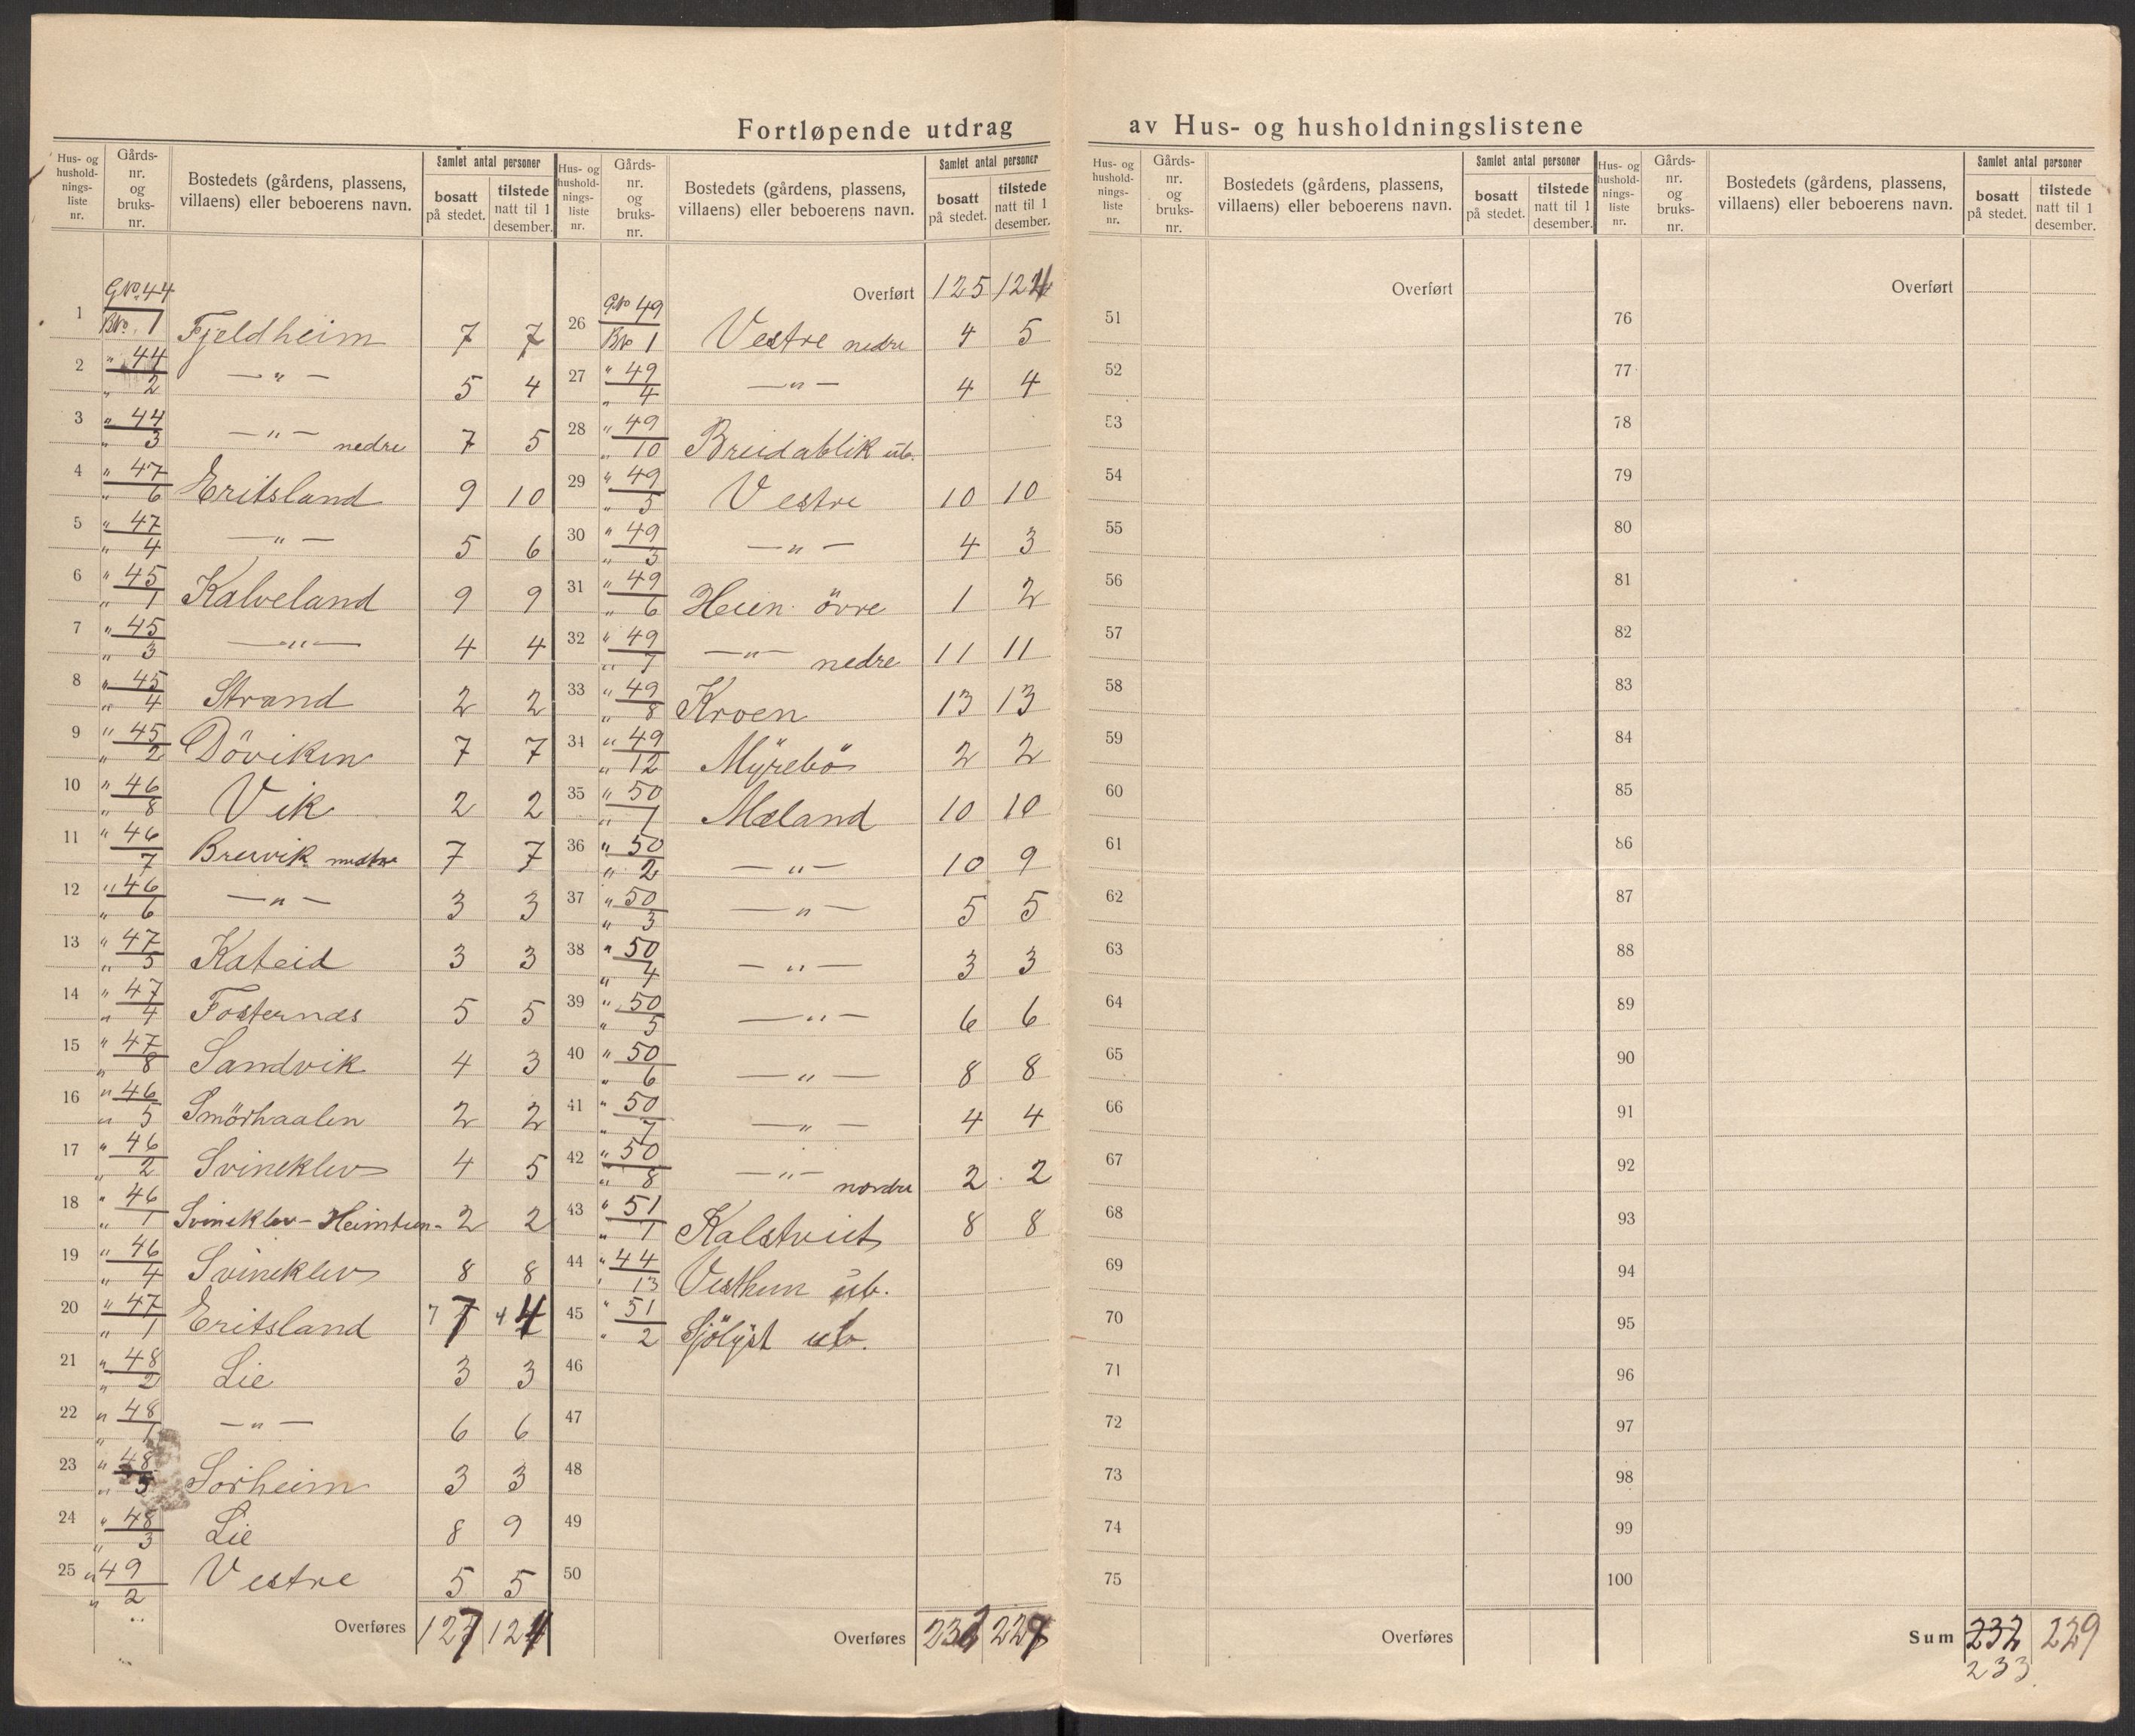 Fortløpende utdrag av Hus- og husholdningslistene
Hus- og husholdnings-liste nr. | Gårds-nr. og bruks-nr. | Bostedets (gårdens, plassens, villaens) eller beboerens navn. | Samlet antal personer | bosatt på stedet. | tilstede natt til 1 desember.
1 G№ 44 B№ 1 Fjeldheim 7 7
2 " 44 " 2 — " — 5 4
3 " 44 " 3 — " — nedre 7 5
4 " 47 " 6 Eritsland 9 10
5 " 47 " 4 — " — 5 6
6 " 45 " 1 Kalveland 9 9
7 " 45 " 3 — " — 4 4
8 " 45 " 4 Strand 2 2
9 " 45 " 2 Döviken 7 7
10 " 46 " 8 Vik 2 2
11 " 46 7 Brevik 7 7
12 " 46 " 6 — " — 3 3
13 " 47 " 5 Kateid 3 3
14 " 47 " 4 Fosternæs 5 5
15 " 47 " 8 Sandvik 4 3
16 " 46 " 5 Smörhaalen 2 2
17 " 46 " 2 Svineklev 4 5
18 " 46 " 1 Svineklev - 2 2
19 " 46 " 4 Svineklev 8 8
20 " 47 " 1 Eritsland 7 7 4 4
21 " 48 " 2 Lie 3 3
22 " 48 " 1 — " — 6 6
23 " 48 " 5 Sörheim 3 3
24 " 48 " 3 Lie 8 9
25 " 49 " 2 Vestre 5 5
Overføres 127 124
Hus- og husholdnings-liste nr. | Gårds-nr. og bruks-nr. | Bostedets (gårdens, plassens, villaens) eller beboerens navn. | Samlet antal personer | bosatt på stedet. | tilstede natt til 1 desember.
Overført 125 124
26 G№ 49 B№ 1 Vestre nedre 4 5
27 " 49 " 4 — " — 4 4
28 " 49 " 10 Breidablik ub.
29 " 49 " 5 Vestre 10 10
30 " 49 " 3 — " — 4 3
31 " 49 " 6 Heien övre 1 2
32 " 49 " 7 — " — nedre 11 11
33 " 49 " 8 Kroen 13 13
34 " 49 " 12 Myrebö 2 2
35 " 50 " 1 Mæland 10 10
36 " 50 " 2 — " — 10 9
37 " 50 " 3 — " — 5 5
38 " 50 " 4 — " — 3 3
39 " 50 " 5 — " — 6 6
40 " 50 " 6 — " — 8 8
41 " 50 " 7 — " — 4 4
42 " 50 " 8 — " — nordre 2 2
43 " 51 " 1 Kalstveit 8 8
44 " 44 " 13 ub.
45 " 51 " 2 Sjölyst ub.
46
47
48
49
50
Overføres
Hus- og husholdnings-liste nr. | Gårds-nr. og bruks-nr. | Bostedets (gårdens, plassens, villaens) eller beboerens navn. | Samlet antal personer | bosatt på stedet. | tilstede natt til 1 desember.
Overført
51
52
53
54
55
56
57
58
59
60
61
62
63
64
65
66
67
68
69
70
71
72
73
74
75
Overføres
Hus- og husholdnings-liste nr. | Gårds-nr. og bruks-nr. | Bostedets (gårdens, plassens, villaens) eller beboerens navn. | Samlet antal personer | bosatt på stedet. | tilstede natt til 1 desember.
Overført
76
77
78
79
80
81
82
83
84
85
86
87
88
89
90
91
92
93
94
95
96
97
98
99
100
Sum 232 229
233